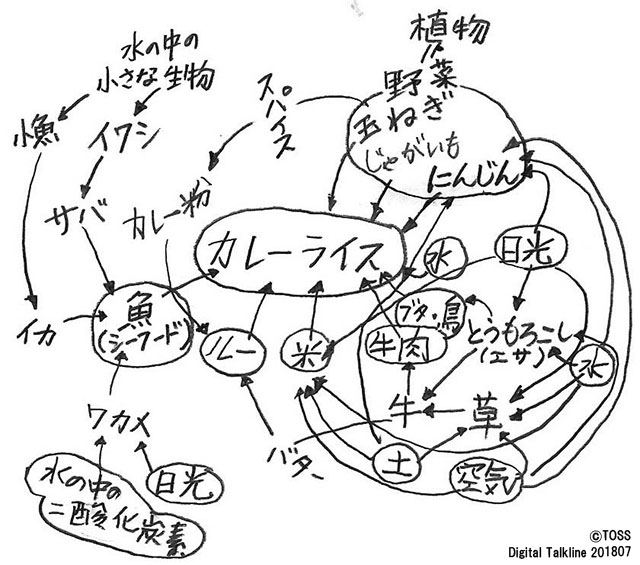 植物
水の中の
小さな生物
スパイス
野菜
玉ねぎ
じゃがいも
にんじん
小魚
イワシ
サバ
カレー粉
カレーライス
水
日光
イカ
魚
(シーフード)
ルー
米
ブタ・鳥
牛肉
とうもろこし
(エサ)
水
ワカメ
牛
草
バター
土
空気
水の中の
二酸化炭素
日光
©TOSS
Digital Talkline 201807